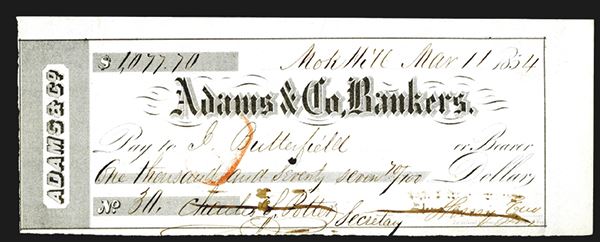 $ 1,077.70 Mok Hill Mar 11 1854
ADAMS & CO
Adams & Co, Bankers.
Pay to J. Butterfield or Bearer
One thousand and Seventy seven 70/100 Dollars
No 30. Charles J. Potter Secretay